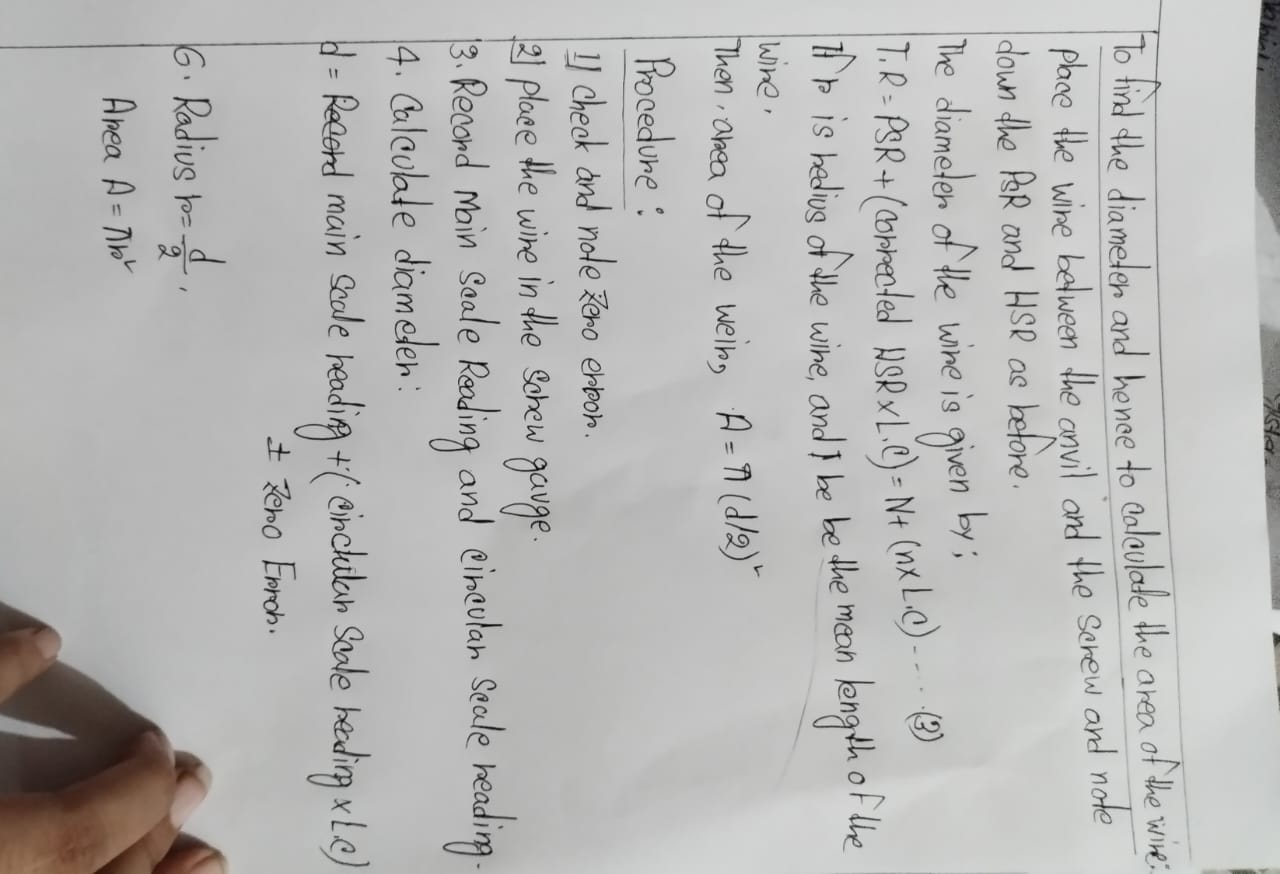 To find the diameter and hence to calculate the area of the wire:
place the wire between the anvil and the screw and note
down the PSR and HSR as before.
The diameter of the wire is given by;
T.R = PSR + (corrected HSR x L.C) = N+ (n x L.C) - - - - (3)
If r is redius of the wire, and l be be the mean length of the
wire.
Then, area of the weir, A = π (d/2)²
Procedure:
1) check and note zero error.
2) place the wire in the screw gauge.
3. Record Main Scale Reading and circular scale reading.
4. Calculate diameter:
d = Record main scale reading + (circular scale reading x L.C)
± zero Error.
6. Radius r = d/2,
Area A = πr²